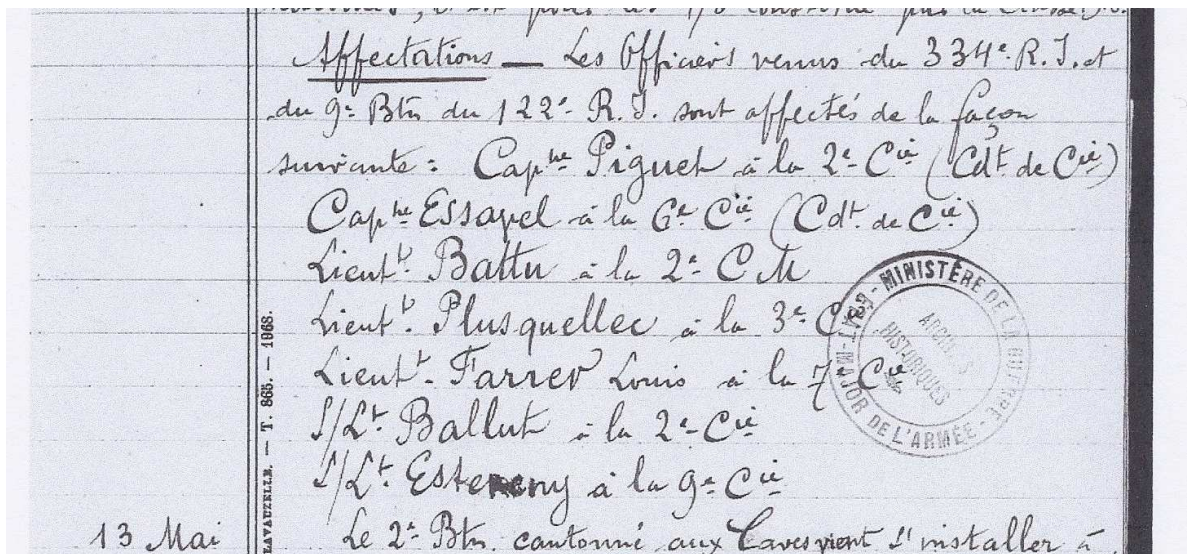 Affectations — Les Officiers venus du 334e R.I. et
du 9e Btn du 122e R.I. sont affectés de la façon
suivante : Capne Piguet à la 2e Cie (Cdt de Cie)
Capne Essapel à la 6e Cie (Cdt de Cie)
Lieutt Battu à la 2e CM
Lieutt Plusquellec à la 3e Cie
Lieutt Farrer Louis à la 7e Cie
S/Lt Ballut à la 2e Cie
S/Lt à la 9e Cie
13 Mai Le 2e Btn cantonné aux Caves vient s'installer à
LAVAUZELLE. — T. 865. — 1968.
MINISTÈRE DE LA GUERRE
ÉTAT-MAJOR DE L'ARMÉE
ARCHIVES
HISTORIQUES